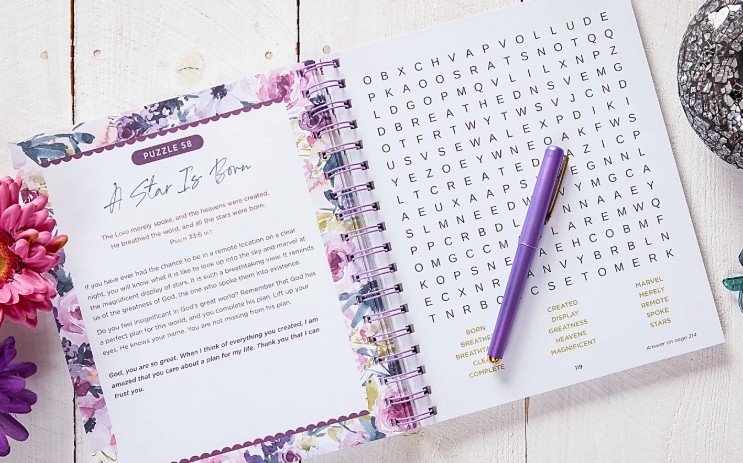 PUZZLE 58
A Star Is Born
The LORD merely spoke, and the heavens were created.
He breathed the word, and all the stars were born.
PSALM 33:6 NLT
If you have ever had the chance to be in a remote location on a clear
night, you will know what it is like to look up into the sky and marvel at
the magnificent display of stars. It is such a breathtaking view. It reminds
us of the greatness of God, the one who spoke them into existence.
Do you feel insignificant in God's great world? Remember that God has
a perfect plan for this world, and you complete his plan. Lift up your
eyes. He knows your name. You are not missing from his plan.
God, you are so great. When I think of everything you created, I am
amazed that you care about a plan for my life. Thank you that I can
trust you.
O B X C H V A P V O L L U D E
P K A O O S R A T S N O T Q Q
L D G O P M Q V L I L X N P Z
D B R E A T H E D N S V E M G
O T F R T W Y T W S V J C N D
U S V S E W A L E X P D I K I
Y E Z O E Y W N E A K F W S
L T C R E A T E D A Z I C P
A E U X A A P S E G N N L
S L M N E E D W V Y M G C A
P P C R B D L N N A A E Y
O M G C C M L A R E M W Q
K O P S N E A E H C O B M F
E C X N R A N V Y B R B L N
T N R B O C S E T O M E R K
BORN CREATED MARVEL
BREATHE DISPLAY MERELY
BREATHT GREATNESS REMOTE
CLEA HEAVENS SPOKE
COMPLETE MAGNIFICENT STARS
Answer on page 214
119